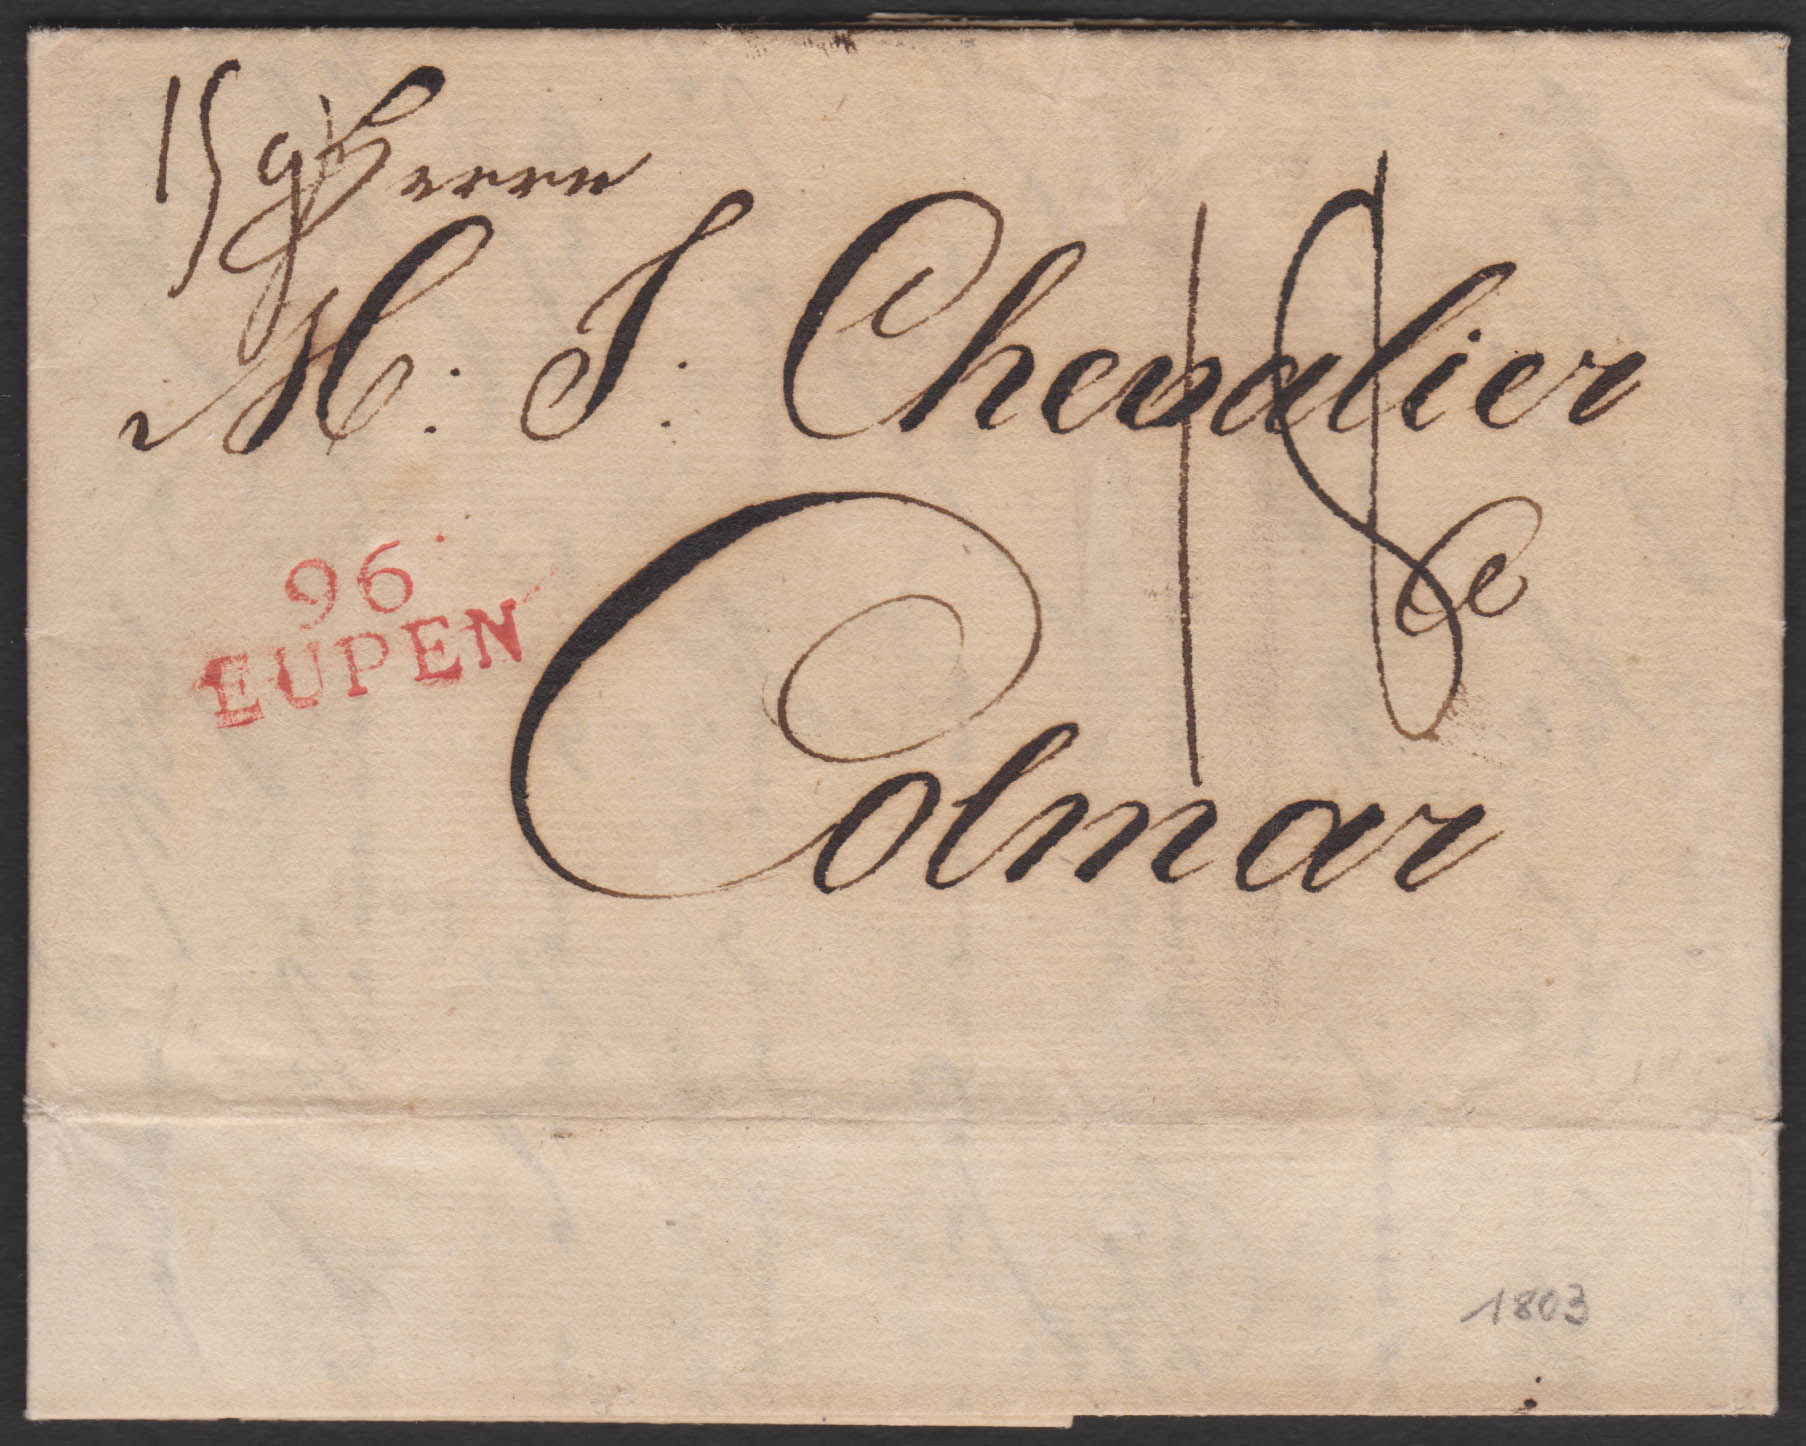 15 g
Herrn
M: J. Chevalier
18
96
EUPEN
Colmar
1803